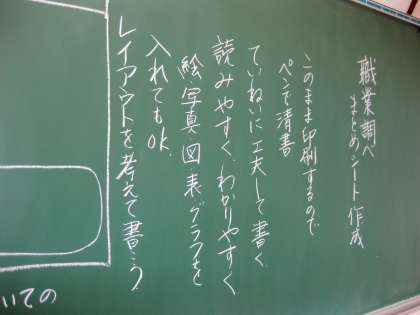 職業調べ
まとめシート作成
このまま印刷するので
ペンで清書
ていねいに工夫して書く
読みやすく、わかりやすく
絵写真図表グラフを
入れてもOK.
レイアウトを考えて書こう
いての